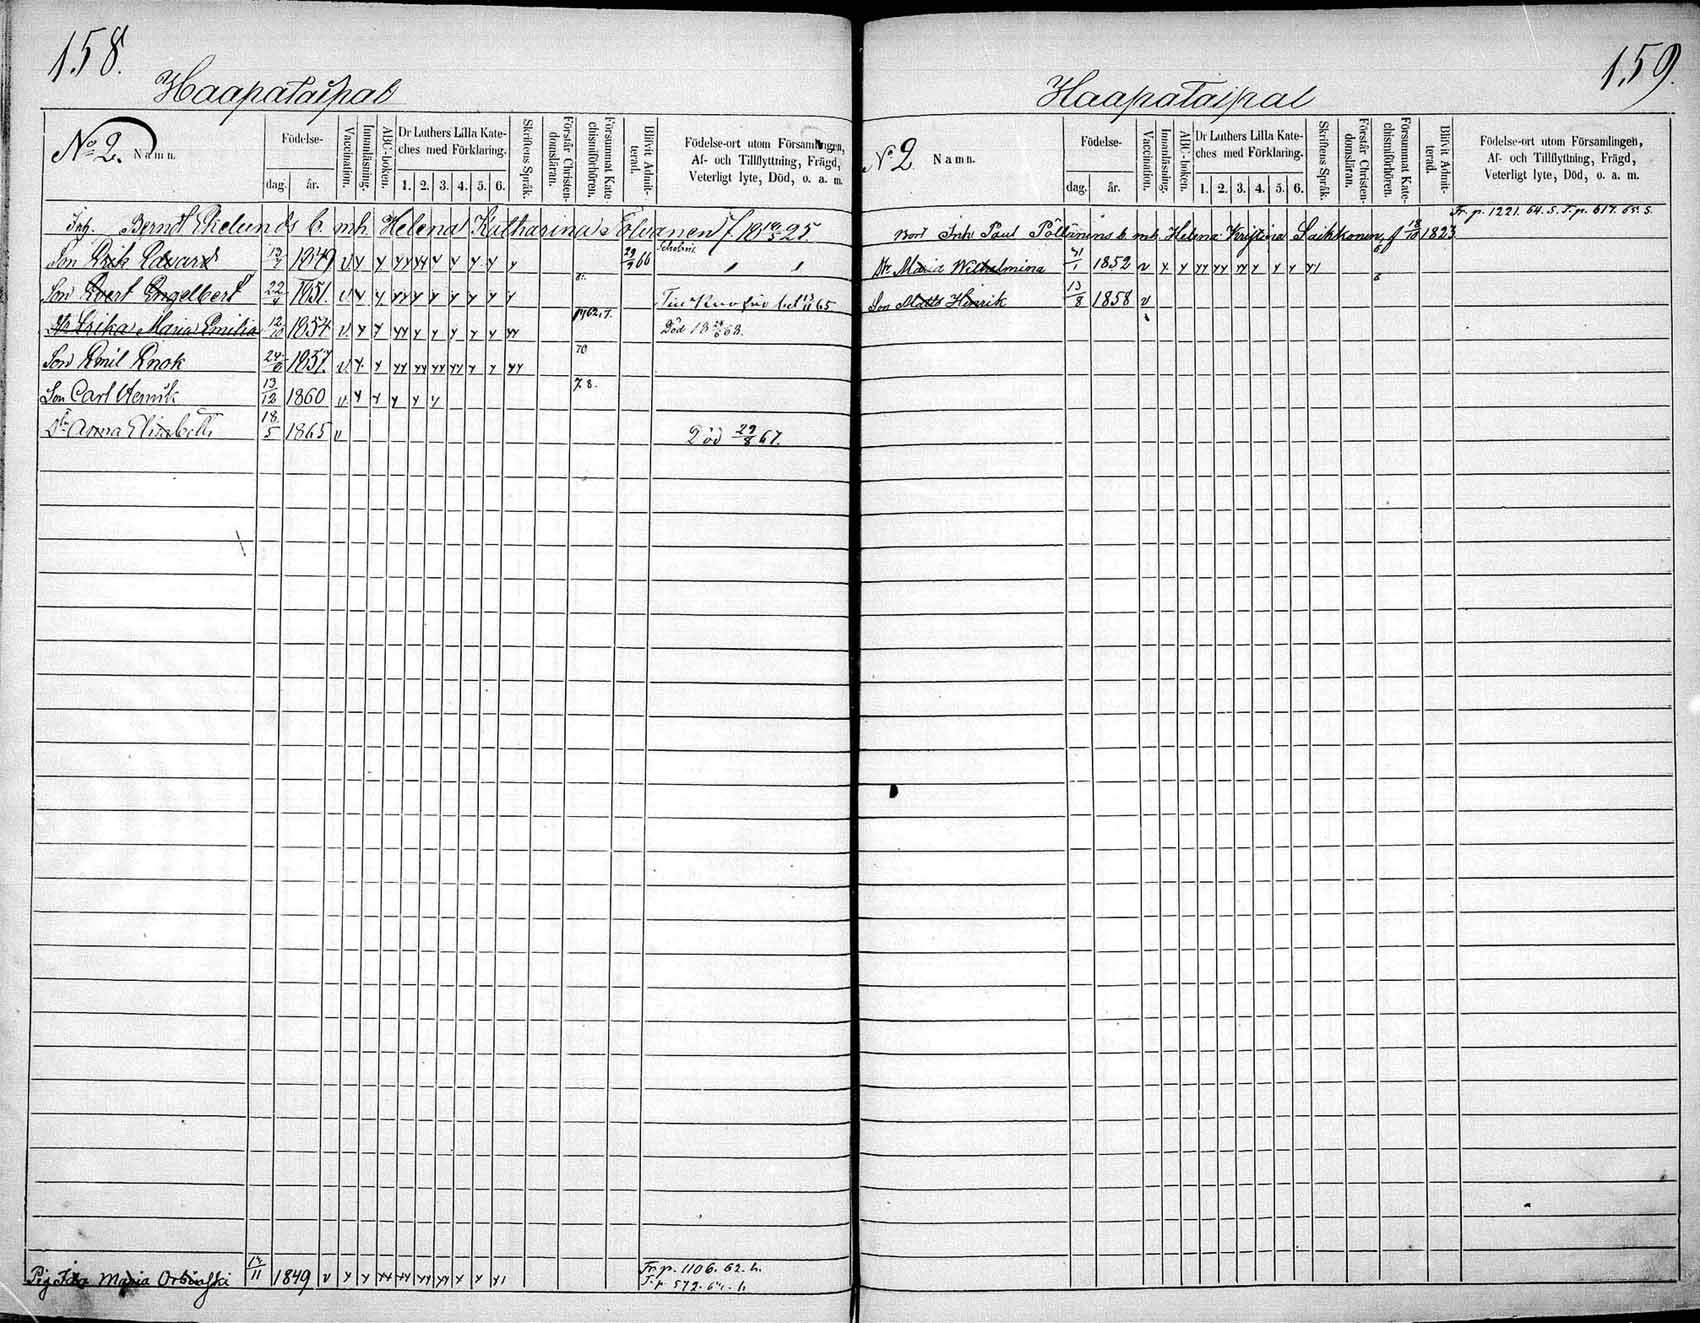 158.
Haapataipal
No 2. Namn.
Födelse-
dag. år.
Vaccination.
Innanläsning.
ABC-boken.
Dr Luthers Lilla Kate-
ches med Förklaring.
1. 2. 3. 4. 5. 6.
Skriftens Språk.
Förstår Christen-
domsläran.
Försummat Kate
chismiförhören.
Blifvit Admit-
terad.
Födelse-ort utom Församlingen,
Af- och Tillflyttning, Frägd,
Veterligt lyte, Död, o. a. m.
Bernt Ekelunds b. mh. Helena Katharina f. 25.
Son Erik Edvard 1849 v y y yy yy y y y y y 29/9 66
Son Evert Engelbert 22 1851. v y y yy y y y y y y 65
Dr Erika Maria Emilia 12/10 1854 v y y yy y y y y y yy 62,7. Död 18 68.
Son Emil Enok 24 1857. v y y yy yy yy yy y y yy 70
Son Carl Henrik 13/12 1860 v y y y y y 7.8.
Dr Anna Elisabeth 18/5 1865 v Död 29/8 67.
Pig. Ida Maria Orbinski 17/11 1849 v y y yy yy yy yy y y yy Fr. p. 1106. 62. h.
T. p. 572. 64. h.
159.
Haapataipal
No 2 Namn.
Födelse-
dag. år.
Vaccination.
Innanläsning.
ABC-boken.
Dr Luthers Lilla Kate-
ches med Förklaring.
1. 2. 3. 4. 5. 6.
Skriftens Språk.
Förstår Christen-
domsläran.
Försummat Kate-
chismiförhören.
Blifvit Admit-
terad.
Födelse-ort utom Församlingen,
Af- och Tillflyttning, Frägd,
Veterligt lyte, Död, o. a. m.
Fr. p. 1221. 64. S. T. p. 617. 65. S.
Inh. Paul Pöllänens b. mh. Helena Kristina Laikkonen, f 18/10 1823
Dr Maria Wilhelmina 1852 v y y yy yy yy y y y yy 6
Son Matts Hinrik 13/8 1858 v 6